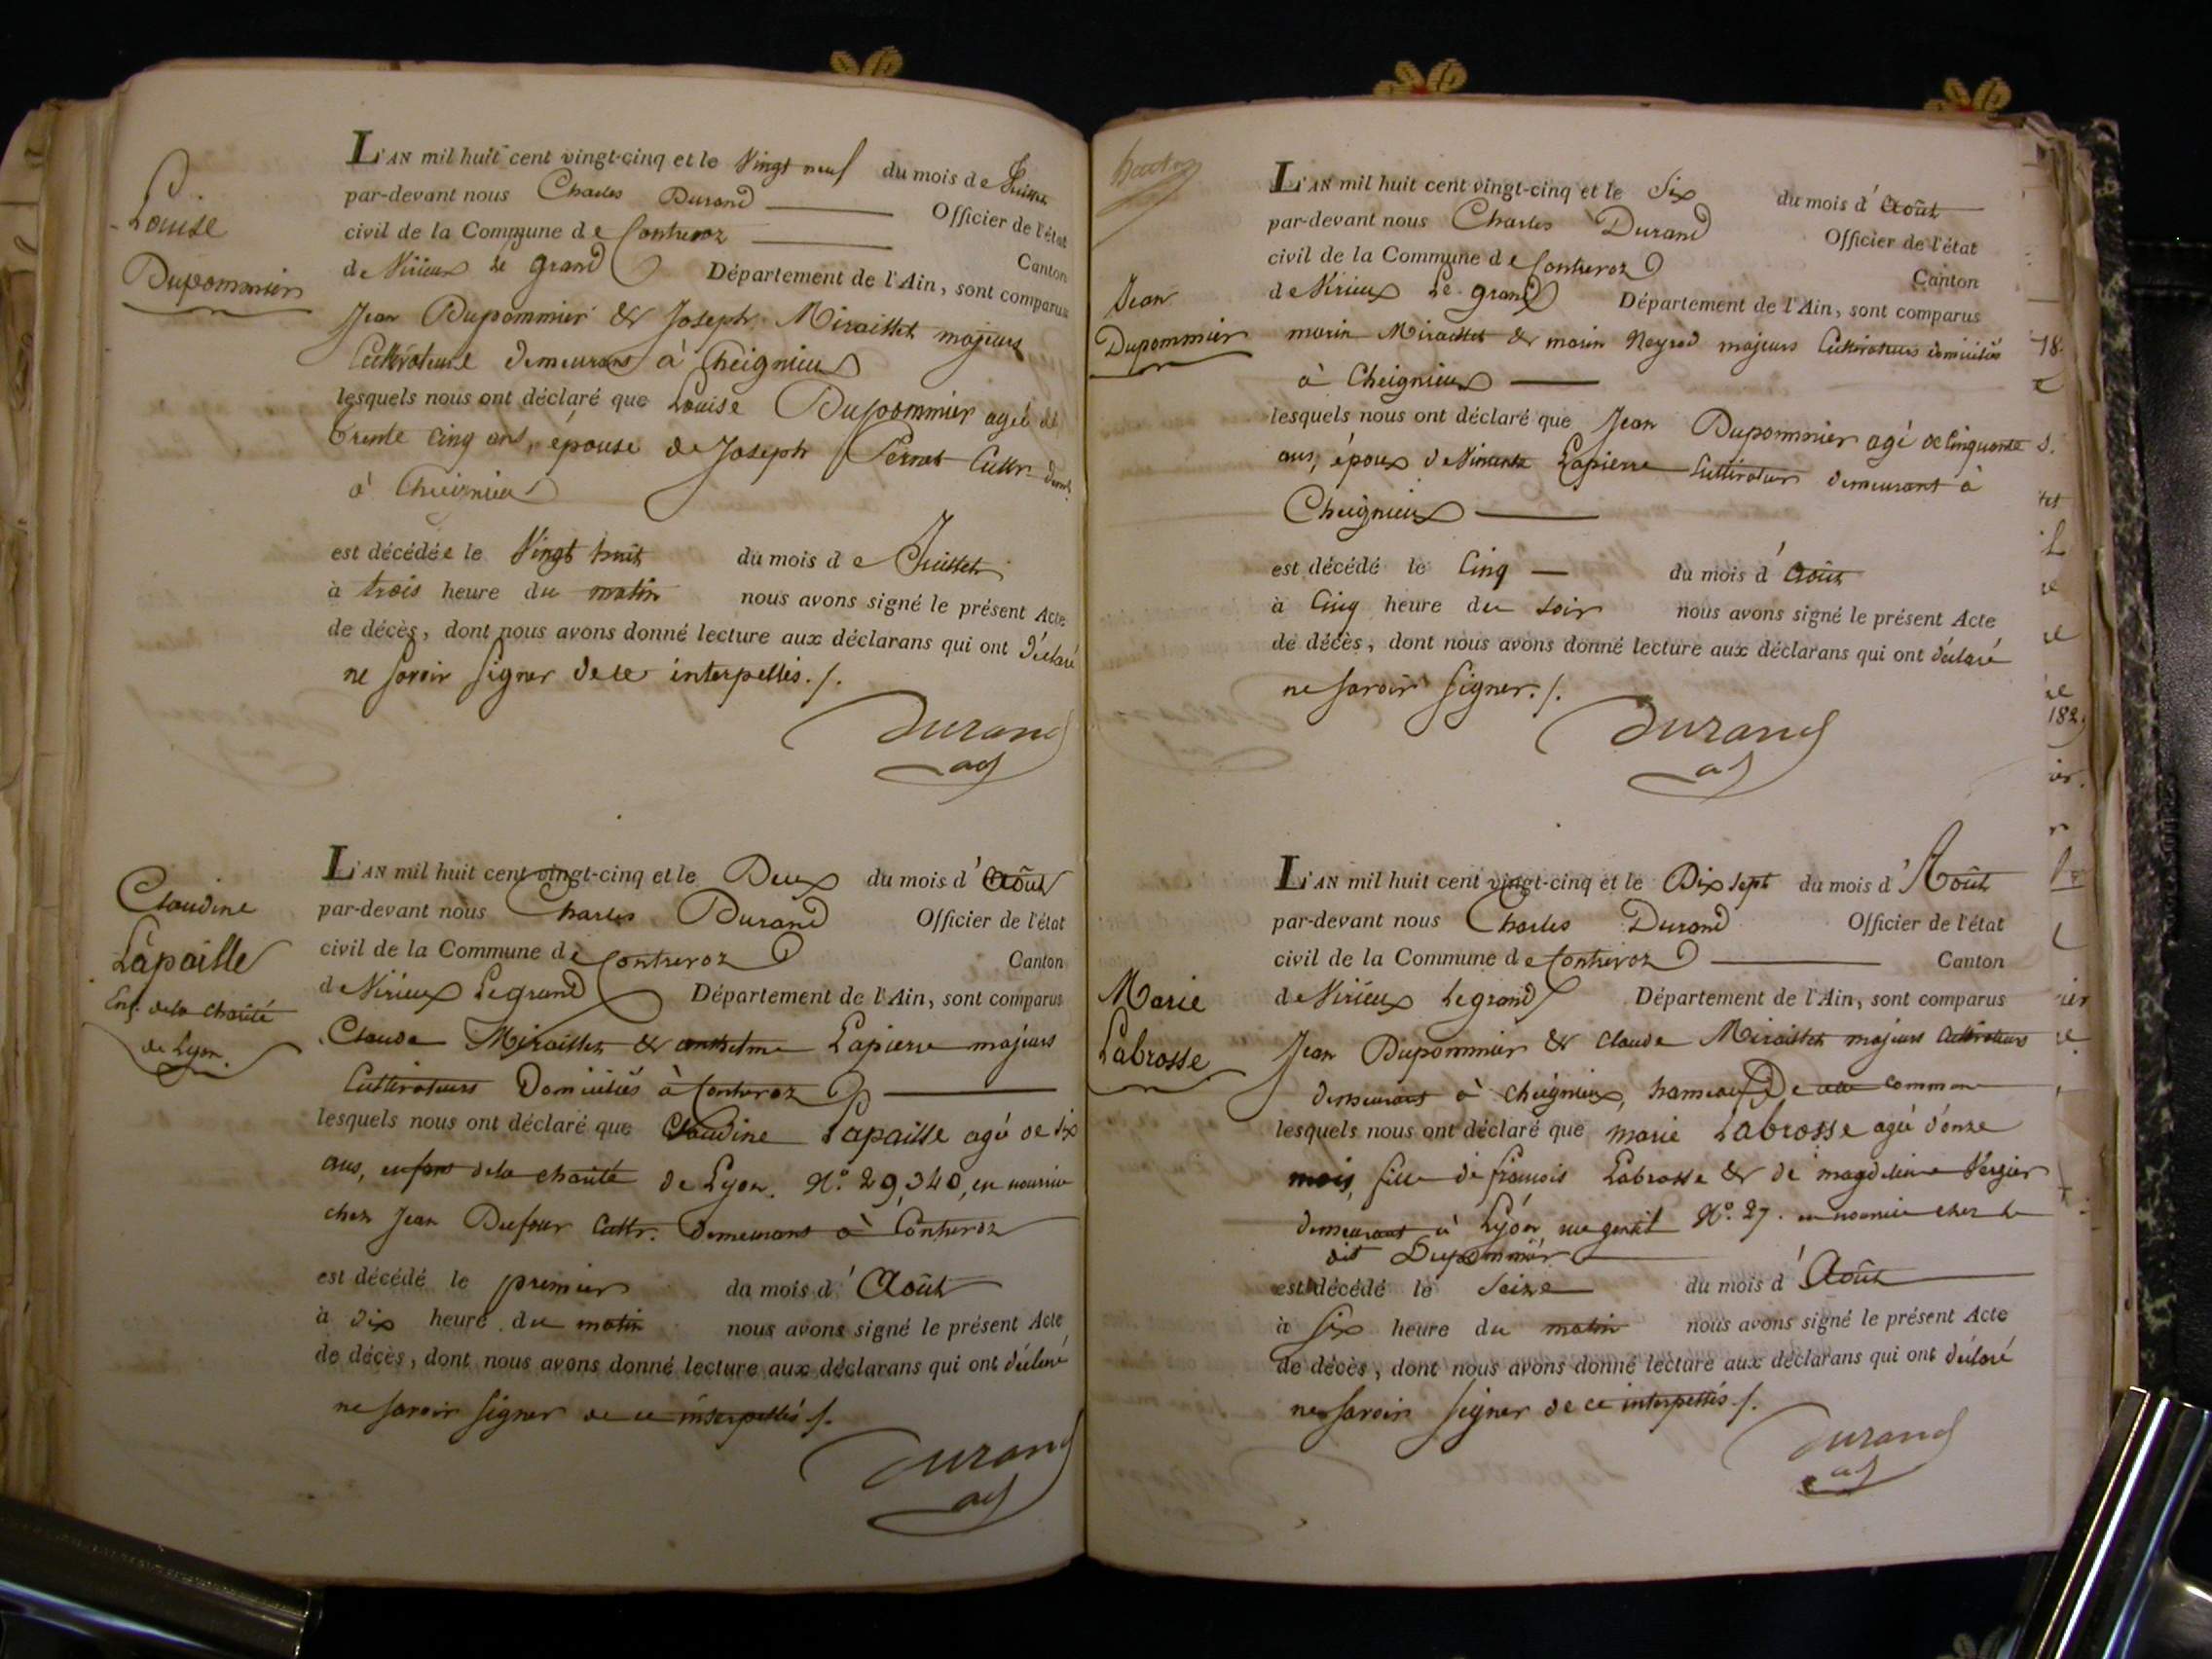 Louise
Dupommier
L'AN mil huit cent vingt-cinq et le Vingt neuf du mois de Juillet
par-devant nous Charles Durand Officier de l'état
civil de la Commune de Contrevoz Canton
de Virieux Le grand Département de l'Ain, sont comparus
Jean Dupommier & Joseph Miraillet majeurs
Cultivateurs demeurans à Cheignieux
lesquels nous ont déclaré que Louise Dupommier agée de
trente cinq ans, épouse de Joseph Pernet Cultr. demt.
à Cheignieux
est décédée le Vingt huit du mois de Juillet
à trois heure du matin nous avons signé le présent Acte
de décès, dont nous avons donné lecture aux déclarans qui ont déclaré
ne savoir signer de ce interpellés./.
Durand
adj
Claudine
Lapaille
Enf. de la charité
de Lyon.
L'AN mil huit cent vingt-cinq et le Deux du mois d'Août
par-devant nous Charles Durand Officier de l'état
civil de la Commune de Contrevoz Canton
de Virieux Legrand Département de l'Ain, sont comparus
Claude Miraillet & anthelme Lapierre majeurs
Cultivateurs Domiciliés à Contrevoz
lesquels nous ont déclaré que Claudine Lapaille agée de six
ans, enfant de la charité de Lyon. N.º 29,340, en nourrice
chez Jean Dufour Cultr. demeurant à Contrevoz
est décédé le premier du mois d'Août
à dix heure du matin nous avons signé le présent Acte
de décès, dont nous avons donné lecture aux déclarans qui ont déclaré
ne savoir signer de ce interpellés./.
Durand
adj
Jean
Dupommier
L'AN mil huit cent vingt-cinq et le Six du mois d'Août
par-devant nous Charles Durand Officier de l'état
civil de la Commune de Contrevoz Canton
de Virieux Le grand Département de l'Ain, sont comparus
marin Miraillet & marin Neyrod majeurs Cultivateurs domiciliés
à Cheignieux
lesquels nous ont déclaré que Jean Dupommier agé de Cinquante
ans, époux de Lapierre Cultivateur demeurant à
Cheignieux
est décédé le Cinq du mois d'Août
à Cinq heure du soir nous avons signé le présent Acte
de décès, dont nous avons donné lecture aux déclarans qui ont déclaré
ne savoir signer./.
Durand
adj
Marie
Labrosse
L'AN mil huit cent vingt-cinq et le Dix sept du mois d'Août
par-devant nous Charles Durand Officier de l'état
civil de la Commune de Contrevoz Canton
de Virieux Legrand Département de l'Ain, sont comparus
Jean Dupommier & Claude Miraillet majeurs Cultivateurs
demeurans à Cheignieux, hameau De cette commune
lesquels nous ont déclaré que marie Labrosse agée d'onze
mois, fille de françois Labrosse & de magdeleine Vergier
demeurant à Lyon rue gentil N.º 27. en nourrice chez le
dit Dupommier
est décédé le Seize du mois d'Août
à Six heure du matin nous avons signé le présent Acte
de décès, dont nous avons donné lecture aux déclarans qui ont déclaré
ne savoir signer de ce interpellés./.
Durand
adj